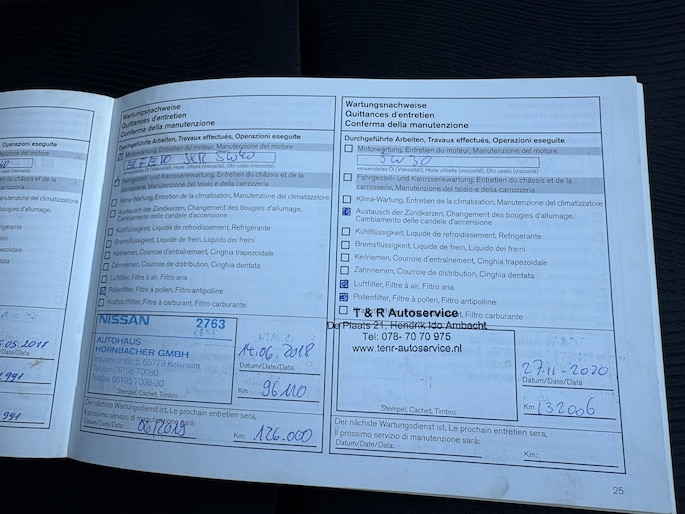 Wartungsnachweise
Quittances d'entretien
Conferma della manutenzione
Durchgeführte Arbeiten, Travaux effectués, Operazioni eseguite
Motorwartung, Entretien du moteur, Manutenzione del motore
5W40
verwendetes Öl (Viskosität), Huile utilisée (viscosité), Olio usato (viscosità)
Fahrgestell- und Karosseriewartung, Entretien du châssis et de la
carrosserie, Manutenzione del telaio e della carrozzeria
Klima-Wartung, Entretien de la climatisation, Manutenzione del climatizzatore
Austausch der Zündkerzen, Changement des bougies d'allumage,
Cambiamento delle candele d'accensione
Kühlflüssigkeit, Liquide de refroidissement, Refrigerante
Bremsflüssigkeit, Liquide de frein, Liquido dei freini
Keilriemen, Courroie d'entraînement, Cinghia trapezoidale
Zahnriemen, Courroie de distribution, Cinghia dentata
Luftfilter, Filtre à air, Filtro aria
Pollenfilter, Filtre à pollen, Filtro antipolline
Kraftstofffilter, Filtre à carburant, Filtro carburante
NISSAN 2763
AUTOHAUS
HORNBACHER GMBH
65779 Kelkheim
14.06.2018
Datum/Date/Data
Km: 96110
Stempel, Cachet, Timbro
Der nächste Wartungsdienst ist, Le prochain entretien sera,
Il prossimo servizio di manutenzione sarà:
Datum/Date/Data: 06/2019 Km: 126.000
Wartungsnachweise
Quittances d'entretien
Conferma della manutenzione
Durchgeführte Arbeiten, Travaux effectués, Operazioni eseguite
Motorwartung, Entretien du moteur, Manutenzione del motore
5W30
verwendetes Öl (Viskosität), Huile utilisée (viscosité), Olio usato (viscosità)
Fahrgestell- und Karosseriewartung, Entretien du châssis et de la
carrosserie, Manutenzione del telaio e della carrozzeria
Klima-Wartung, Entretien de la climatisation, Manutenzione del climatizzatore
Austausch der Zündkerzen, Changement des bougies d'allumage,
Cambiamento delle candele d'accensione
Kühlflüssigkeit, Liquide de refroidissement, Refrigerante
Bremsflüssigkeit, Liquide de frein, Liquido dei freini
Keilriemen, Courroie d'entraînement, Cinghia trapezoidale
Zahnriemen, Courroie de distribution, Cinghia dentata
Luftfilter, Filtre à air, Filtro aria
Pollenfilter, Filtre à pollen, Filtro antipolline
T & R Autoservice
De Plaats 21, Hendrik Ido Ambacht
Tel: 078- 70 70 975
www.tenr-autoservice.nl
27-11-2020
Datum/Date/Data
Km: 132006
Stempel, Cachet, Timbro
Der nächste Wartungsdienst ist, Le prochain entretien sera,
Il prossimo servizio di manutenzione sarà:
Datum/Date/Data: Km:
25